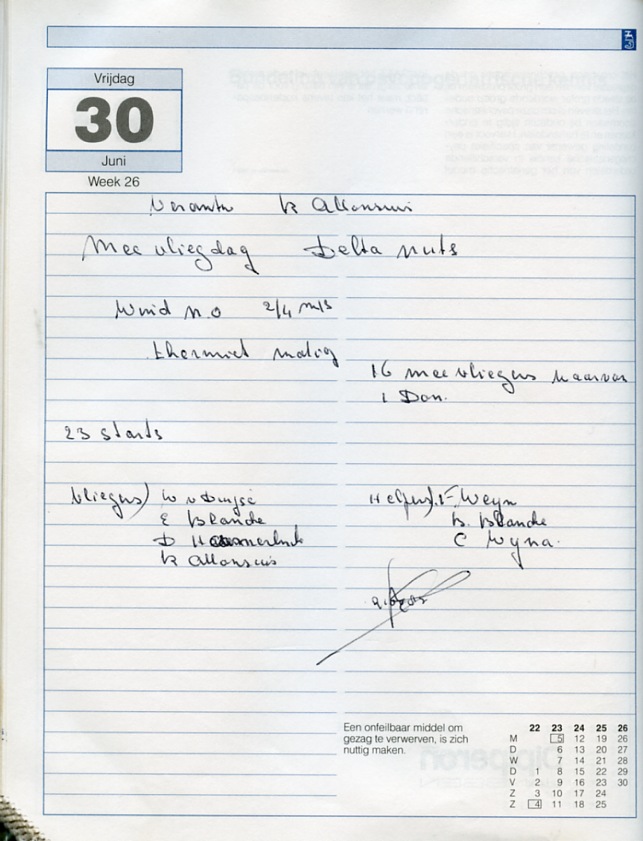 Vrijdag
30
Juni
Week 26
Mee vliegdag Delta nuts
Wind n.o 2/4 m/s
thermiek matig
16 mee vliegers waarvan
1 Don.
23 starts
Vliegers)
E Blande
D
Helpers) F Weyn
B. Blande
C Wyna.
Een onfeilbaar middel om
gezag te verwerven, is zich
nuttig maken.
22 23 24 25 26
M 5 12 19 26
D 6 13 20 27
W 7 14 21 28
D 1 8 15 22 29
V 2 9 16 23 30
Z 3 10 17 24
Z 4 11 18 25